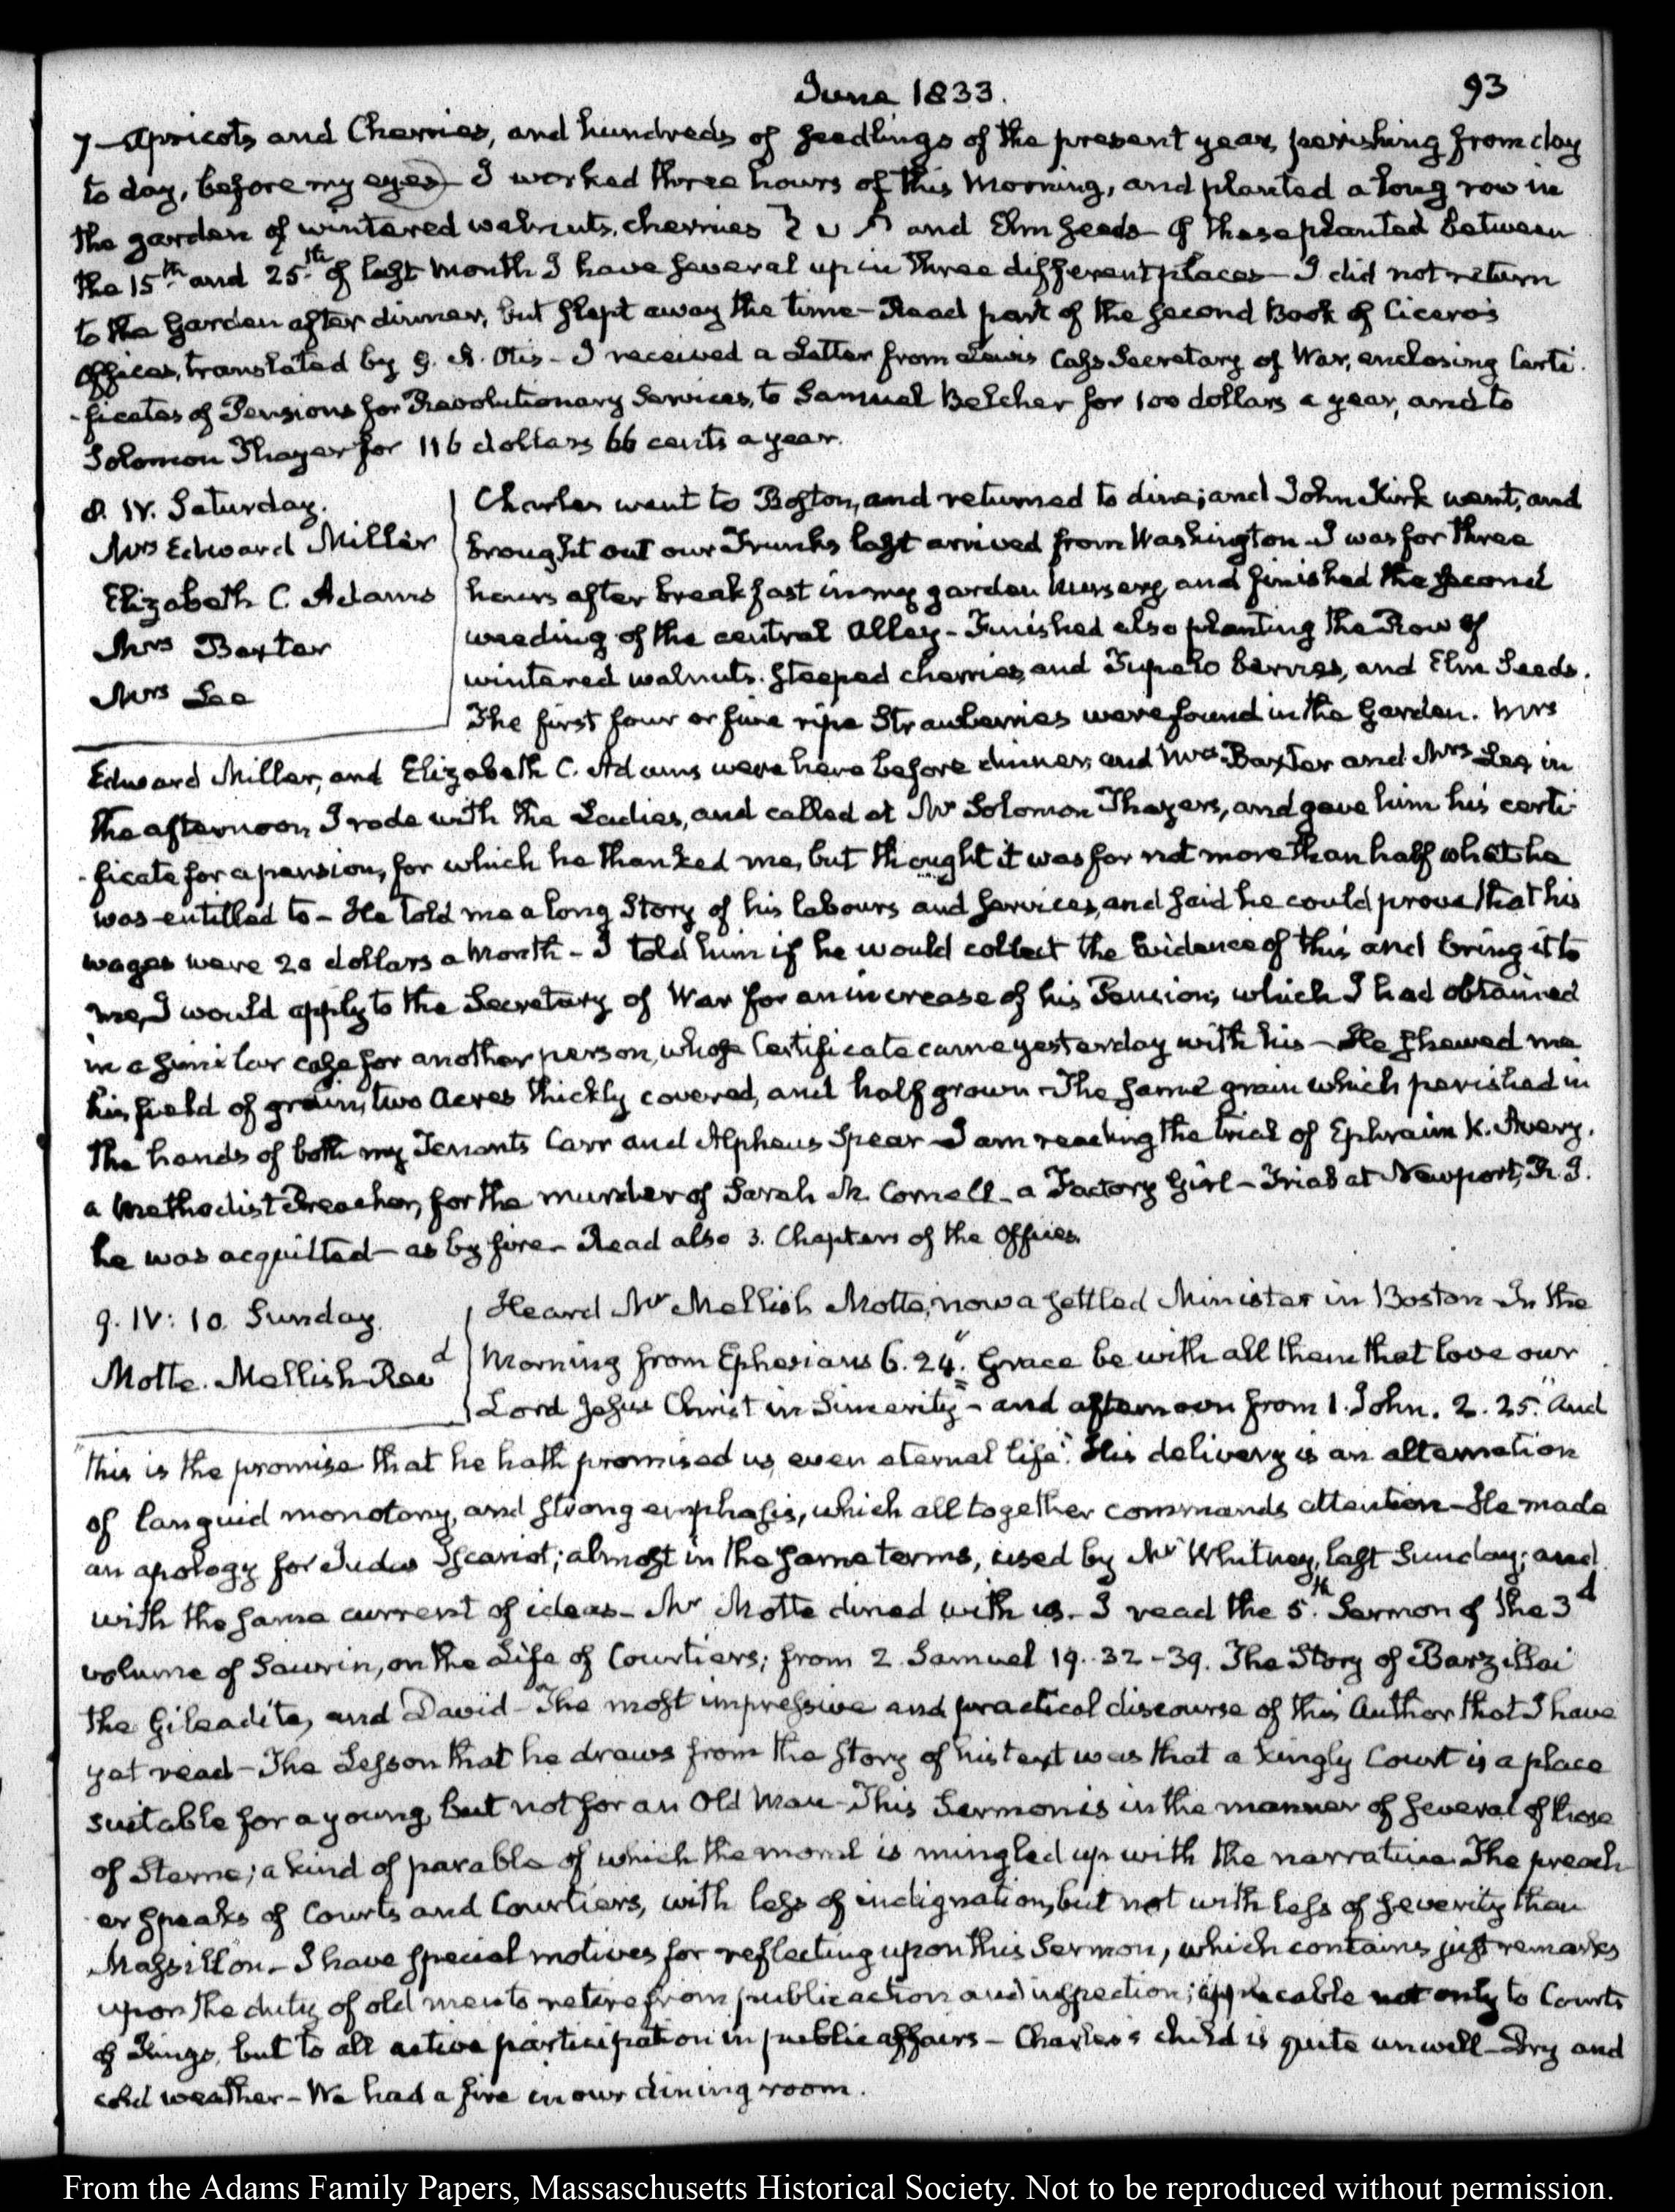 June 1833.
93
7— Apricots and Cherries, and hundreds of seedlings of the present year, perishing from day
to day, before my eyes— I worked three hours of this Morning, and planted a long row in
the garden of wintered walnuts, cherries and Elm seeds— Of those planted between
the 15th and 25th of last Month I have several up in three different places— I did not return
to the Garden after dinner, but slept away the time— Read part of the second Book of Cicero's
Offices, translated by Otis— I received a Letter from Lewis Cass Secretary of War, enclosing Certi-
-ficates of Pensions for Revolutionary Services, to Samuel Belcher for 100 dollars a year, and to
Solomon Thayer for 116 dollars 66 cents a year.
8. IV. Saturday.
Mrs Edward Miller
Elizabeth C. Adams
Mrs Baxter
Mrs Lee
Charles went to Boston, and returned to dine; and John Kirk went, and
brought out our Trunks last arrived from Washington— I was for three
hours after breakfast in my garden Nursery and finished the second
weeding of the central Alley— Finished also planting the Row of
wintered walnuts. Steeped cherries, and Tupelo berries, and Elm Seeds.
The first four or five ripe Strawberries were found in the Garden. Mrs
Edward Miller, and Elizabeth C. Adams were here before dinner, and Mrs Baxter and Mrs Lee in
the afternoon I rode with the Ladies, and called at Mr Solomon Thayers, and gave him his certi-
-ficate for a pension, for which he thanked me, but thought it was for not more than half what he
was entitled to— He told me a long Story of his labours and services, and said he could prove that his
wages were 20 dollars a Month— I told him if he would collect the Evidence of this and bring it to
me, I would apply to the Secretary of War for an increase of his Pension, which I had obtained
in a similar case for another person, whose Certificate came yesterday with his— He shewed me
his field of grain, two Acres thickly covered, and half grown— The same grain which perished in
the hands of both my Tenants Carr and Alpheus Spear— I am reading the trial of Ephraim K. Avery.
a Methodist Preacher, for the murder of Sarah M. Cornell— a Factory Girl— Trial at Newport, R. I.
he was acquitted— as by fire— Read also 3. Chapters of the Offices.
9. IV: 10. Sunday.
Motte. Mellish Revd
Heard Mr Mellish Motte, now a settled Minister in Boston— In the
Morning from Ephesians 6. 24. "Grace be with all them that love our
Lord Jesus Christ in Sincerity"— and afternoon from 1. John. 2. 25. "And
"this is the promise that he hath promised us, even eternal life." His delivery is an alternation
of languid monotony, and strong emphasis, which all together commands attention— He made
an apology for Judas Iscariot; almost in the same terms, used by Mr Whitney, last Sunday; and
with the same current of ideas— Mr Motte dined with us— I read the 5th Sermon of the 3d
volume of Saurin, on the Life of Courtiers; from 2. Samuel 19. 32-39. The Story of Barzillai
the Gileadite, and David— The most impressive and practical discourse of this Author that I have
yet read— The Lesson that he draws from the story of his text was that a kingly Court is a place
suitable for a young, but not for an Old Man— This Sermon is in the manner of several of those
of Sterne; a kind of parable of which the moral is mingled up with the narrative. The preach-
er speaks of Courts and Courtiers, with less of indignation, but not with less of severity than
Massillon— I have special motives for reflecting upon this Sermon, which contains just remarks
upon the duty of old men to retire from public action and inspection; applicable not only to Courts
of Kings, but to all active participation in public affairs— Charles's child is quite unwell— Dry and
cold weather— We had a fire in our dining room.
From the Adams Family Papers, Massachusetts Historical Society. Not to be reproduced without permission.